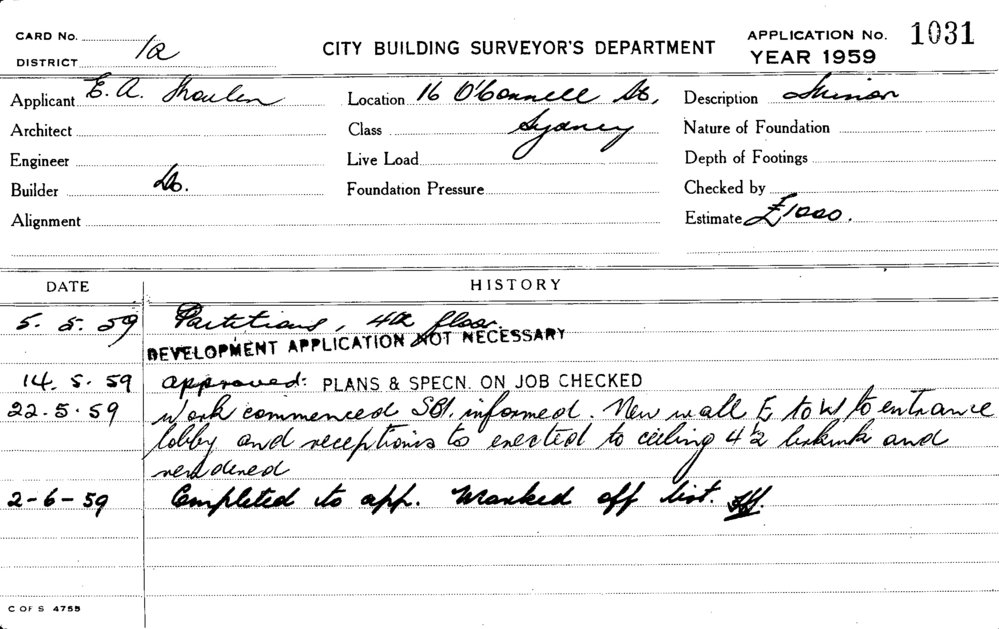 CARD No.
CITY BUILDING SURVEYOR'S DEPARTMENT
APPLICATION No. 1031
DISTRICT 1a
YEAR 1959
Applicant E. A.
Location 16 O'Connell St,
Description Minor
Architect
Class Sydney
Nature of Foundation
Engineer
Live Load
Depth of Footings
Builder Do.
Foundation Pressure
Checked by
Alignment
Estimate £1000.
DATE
HISTORY
5. 5. 59 Partitions, 4th floor.
DEVELOPMENT APPLICATION NOT NECESSARY
14. 5. 59 approved: PLANS & SPECN. ON JOB CHECKED
22. 5. 59 Work commenced informed. New wall E to W to entrance
lobby and receptions to erected to ceiling 4½ and
rendered
2-6-59 Completed to app. Marked off list.
C OF S 4755